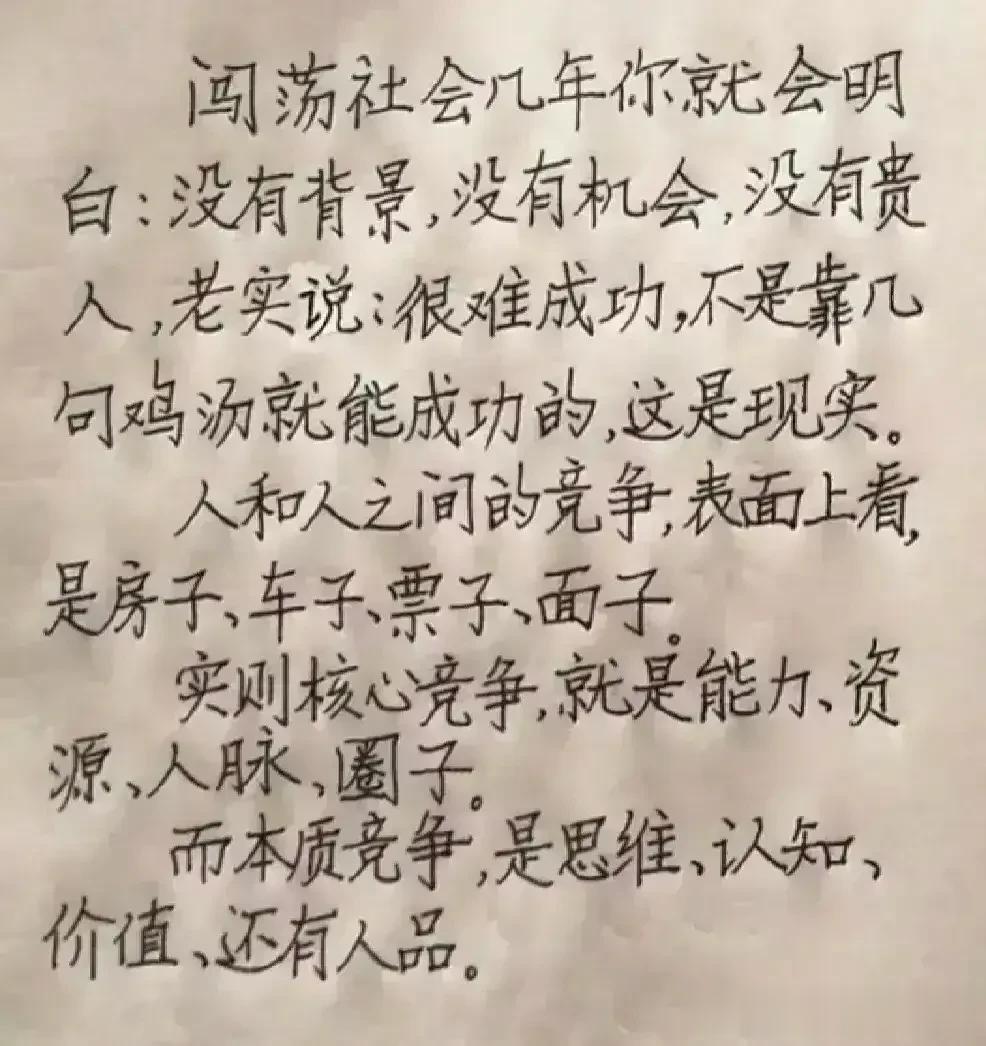 闯荡社会几年你就会明
白：没有背景，没有机会，没有贵
人，老实说：很难成功，不是靠几
句鸡汤就能成功的，这是现实。
人和人之间的竞争，表面上看，
是房子、车子、票子、面子。
实则核心竞争，就是能力、资
源、人脉、圈子。
而本质竞争，是思维、认知、
价值、还有人品。